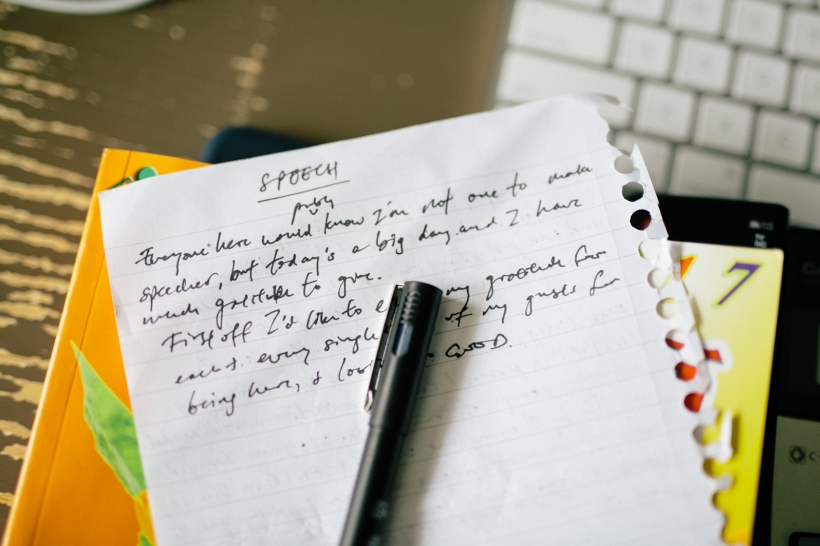 SPEECH
prby
Everyone here would know I'm not one to make
speeches, but today's a big day, and I have
much gratitude to give.
First off I'd like to e my gratitude for
each & every single of my guests for
being here, & loo GOOD.
7